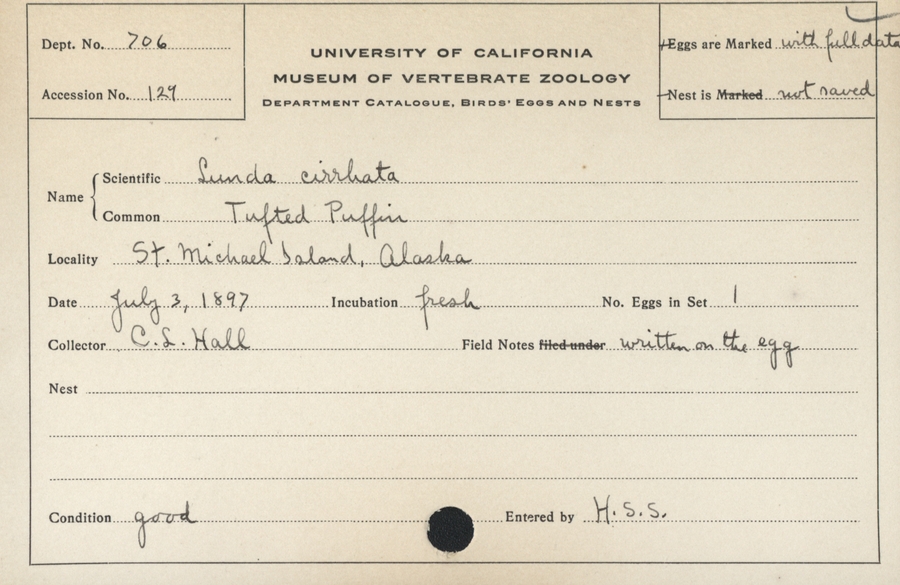 Dept. No. 706
Accession No. 129
UNIVERSITY OF CALIFORNIA
MUSEUM OF VERTEBRATE ZOOLOGY
DEPARTMENT CATALOGUE, BIRDS' EGGS AND NESTS
Eggs are Marked with full data
Nest is Marked not saved
Name
Scientific Lunda cirrhata
Common Tufted Puffin
Locality St. Michael Island, Alaska
Date July 3, 1897 Incubation fresh No. Eggs in Set 1
Collector C. L. Hall Field Notes filed under written on the egg
Nest
Condition good Entered by H.S.S.